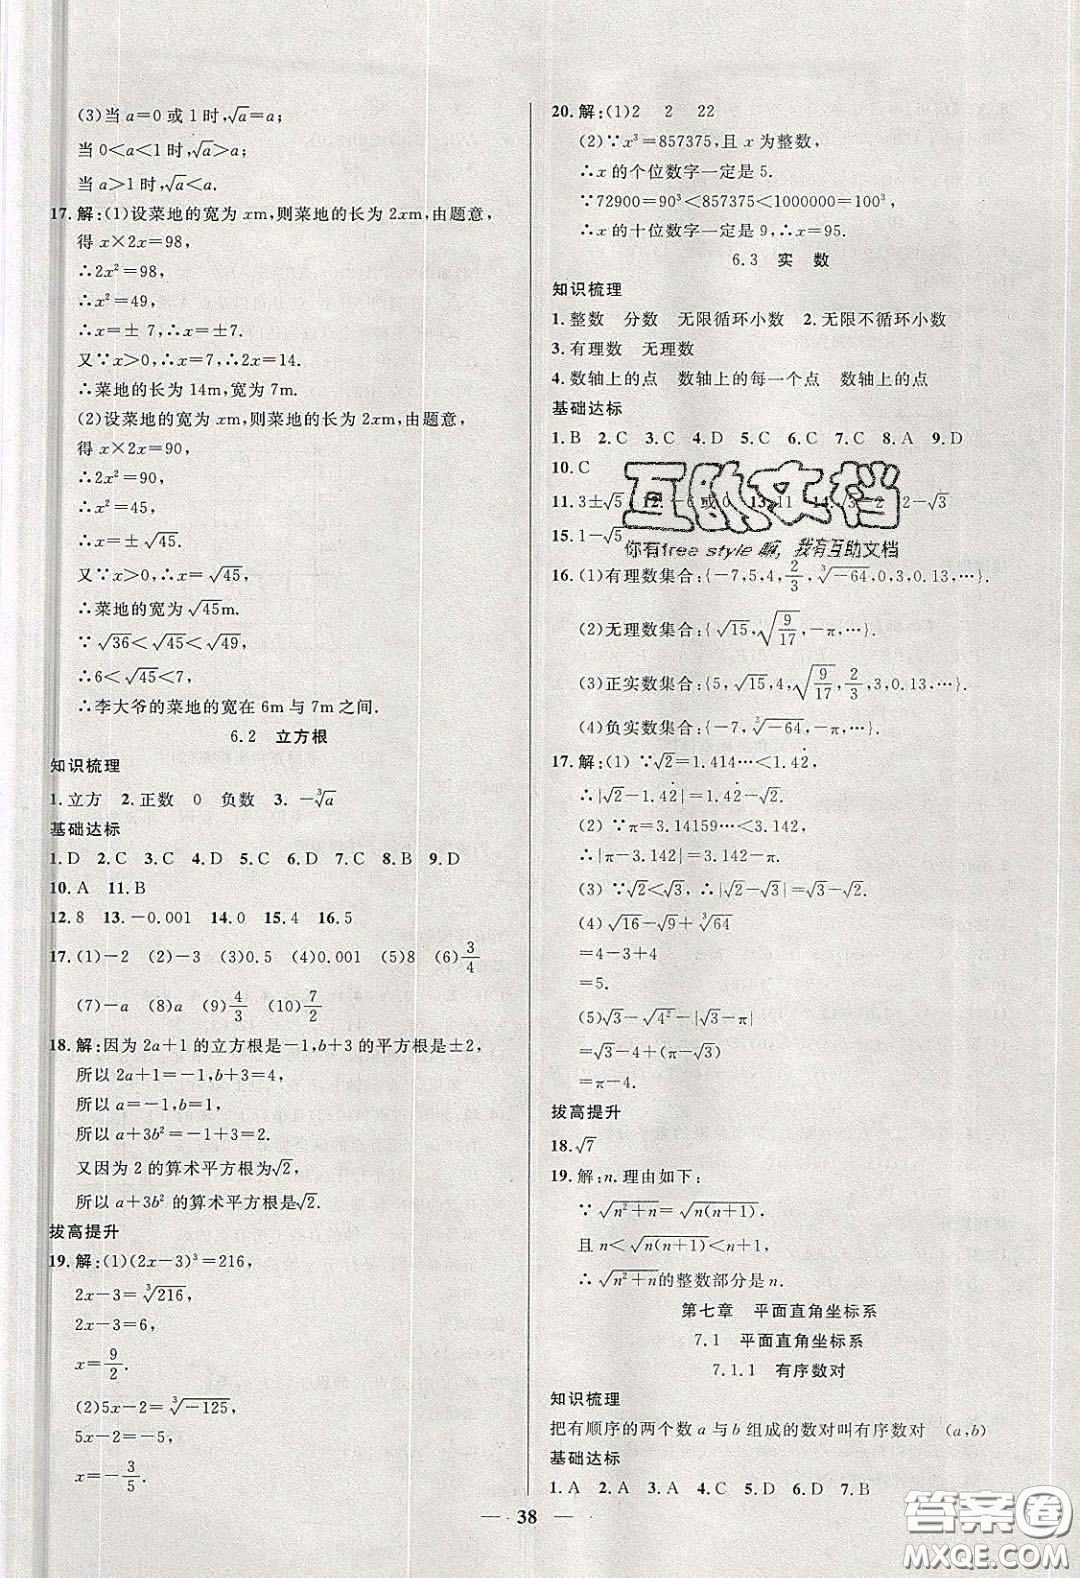 (3)当 a=0 或 1 时,√a=a;
当 0<a<1 时,√a>a;
当 a>1 时,√a<a.
17.解:(1)设菜地的宽为 xm,则菜地的长为 2xm,由题意,
得 x×2x=98,
∴2x²=98,
∴x²=49,
∴x=± 7,∴x=±7.
又∵x>0,∴x=7,∴2x=14.
∴菜地的长为 14m,宽为 7m.
(2)设菜地的宽为 xm,则菜地的长为 2xm,由题意,
得 x×2x=90,
∴2x²=90,
∴x²=45,
∴x=± √45.
又∵x>0,∴x= √45,
∴菜地的宽为 √45m.
∵ √36<√45<√49,
∴6< √45<7,
∴李大爷的菜地的宽在 6m 与 7m 之间.
6.2 立方根
知识梳理
1.立方 2.正数 0 负数 3. -∛a
基础达标
1.D 2.C 3.C 4.D 5.C 6.D 7.C 8.B 9.D
10.A 11.B
12.8 13.-0.001 14.0 15.4 16.5
17.(1)-2 (2)-3 (3)0.5 (4)0.001 (5)8 (6)3/4
(7)-a (8)a (9)4/3 (10)7/2
18.解:因为 2a+1 的立方根是-1,b+3 的平方根是±2,
所以 2a+1=-1,b+3=4,
所以 a=-1,b=1,
所以 a+3b²=-1+3=2.
又因为 2 的算术平方根为√2,
所以 a+3b² 的算术平方根是√2.
拔高提升
19.解:(1)(2x-3)³=216,
2x-3=∛216,
2x-3=6,
x=9/2.
(2)5x-2=∛-125,
5x-2=-5,
x=-3/5.
20.解:(1)2 2 22
(2)∵x³=857375,且 x 为整数,
∴x 的个位数字一定是 5.
∵72900=90³<857375<1000000=100³,
∴x 的十位数字一定是 9,∴x=95.
6.3 实 数
知识梳理
1.整数 分数 无限循环小数 2.无限不循环小数
3.有理数 无理数
4.数轴上的点 数轴上的每一个点 数轴上的点
基础达标
1.B 2.C 3.C 4.D 5.C 6.C 7.C 8.A 9.D
10.C
11.3±√5 12.-6 或 0 13.11 14.√3-2 2-√3
15.1-√5
互助文档
你有free style 嘛, 我有互助文档
16.(1)有理数集合:{-7,5,4,2/3,∛-64,0,3,0.13,…}.
(2)无理数集合:{√15,√(9/17),-π,…}.
(3)正实数集合:{5,√15,4,√(9/17),2/3,3,0.13,…}.
(4)负实数集合:{-7,∛-64,-π,…}.
17.解:(1) ∵√2=1.414…<1.42̇,
∴|√2-1.42̇|=1.42̇-√2.
(2) ∵π=3.14159…<3.142,
∴|π-3.142|=3.142-π.
(3) ∵√2<√3, ∴|√2-√3|=√3-√2.
(4) √16-√9+∛64
=4-3+4
=5.
(5)√3-√4²-|√3-π|
=√3-4-(π-√3)
=√3-4-π+√3
=-π-4.
拔高提升
18.√7
19.解:n.理由如下:
∵ √n²+n=√n(n+1),
且 n< √n(n+1)<n+1,
∴ √n²+n的整数部分是 n.
第七章 平面直角坐标系
7.1 平面直角坐标系
7.1.1 有序数对
知识梳理
把有顺序的两个数 a 与 b 组成的数对叫有序数对 (a,b)
基础达标
1.A 2.A 3.A 4.C 5.D 6.D 7.B
38
答案圈
MXQE.COM